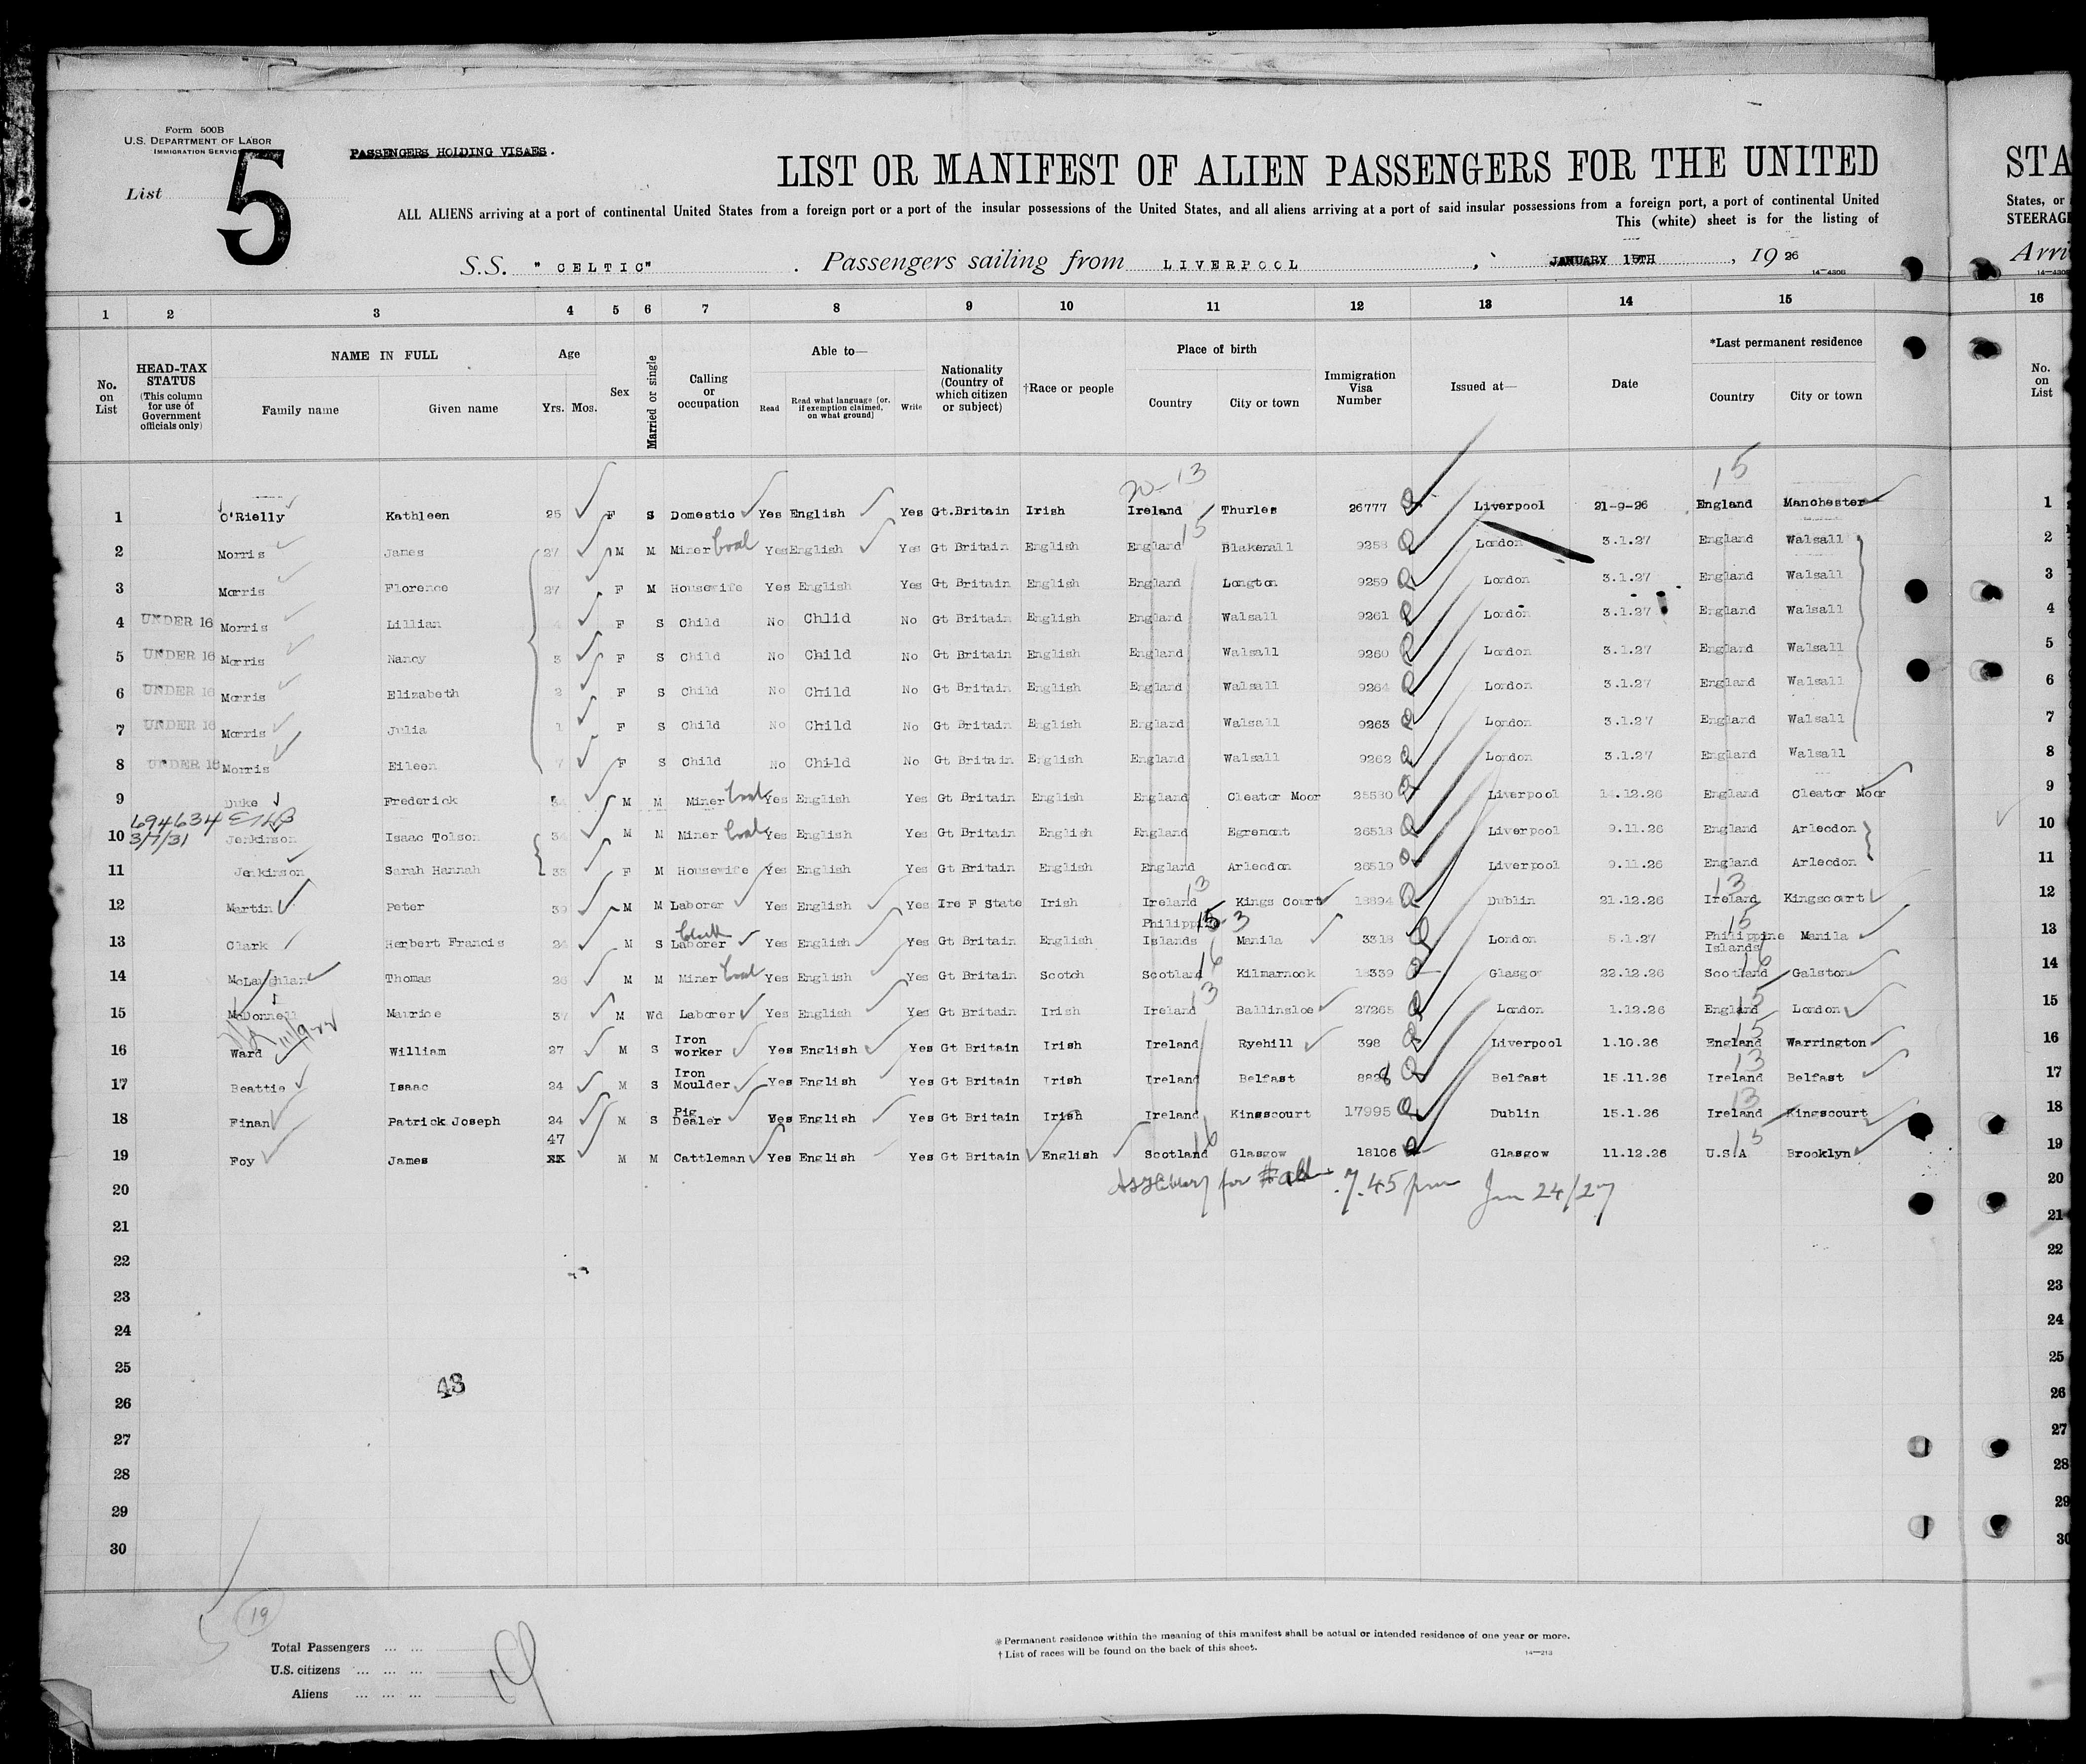 Form 500B
U.S. DEPARTMENT OF LABOR
IMMIGRATION SERVICE
List 5
PASSENGERS HOLDING VISAES.
LIST OR MANIFEST OF ALIEN PASSENGERS FOR THE UNITED STA
ALL ALIENS arriving at a port of continental United States from a foreign port or a port of the insular possessions of the United States, and all aliens arriving at a port of said insular possessions from a foreign port, a port of continental United States, or
This (white) sheet is for the listing of STEERAG
S.S. "CELTIC" . Passengers sailing from LIVERPOOL , JANUARY 15TH , 1926 Arri
14-4306
1 2 3 4 5 6 7 8 9 10 11 12 13 14 15 16
No. on List
HEAD-TAX STATUS (This column for use of Government officials only)
NAME IN FULL
Family name Given name
Age
Yrs. Mos.
Sex
Married or single
Calling or occupation
Able to—
Read Read what language (or, if exemption claimed, on what ground) Write
Nationality (Country of which citizen or subject)
†Race or people
Place of birth
Country City or town
Immigration Visa Number
Issued at—
Date
*Last permanent residence
Country City or town
No. on List
20-13 15
1 O'Rielly Kathleen 25 F S Domestic Yes English Yes Gt.Britain Irish Ireland Thurles 26777 Liverpool 21-9-26 England Manchester 1
15
2 Morris James 27 M M Miner Coal Yes English Yes Gt Britain English England Blakenall 9258 London 3.1.27 England Walsall 2
3 Morris Florence 27 F M Housewife Yes English Yes Gt Britain English England Longton 9259 London 3.1.27 England Walsall 3
4 UNDER 16 Morris Lillian F S Child No Chlid No Gt Britain English England Walsall 9261 London 3.1.27 England Walsall 4
5 UNDER 16 Morris Nancy 3 F S Child No Child No Gt Britain English England Walsall 9260 London 3.1.27 England Walsall 5
6 UNDER 16 Morris Elizabeth 2 F S Child No Child No Gt Britain English England Walsall 9264 London 3.1.27 England Walsall 6
7 UNDER 16 Morris Julia 1 F S Child No Child No Gt Britain English England Walsall 9263 London 3.1.27 England Walsall 7
8 UNDER 16 Morris Eileen 7 F S Child No Child No Gt Britain English England Walsall 9262 London 3.1.27 England Walsall 8
9 Duke Frederick M M Miner Coal Yes English Yes Gt Britain English England Cleator Moor 25530 Liverpool 14.12.26 England Cleator Moor 9
694634
3/7/31
10 Jenkinson Isaac Tolson M M Miner Coal Yes English Yes Gt Britain English England Egremont 26518 Liverpool 9.11.26 England Arlecdon 10
11 Jenkinson Sarah Hannah 33 F M Housewife Yes English Yes Gt Britain English England Arlecdon 26519 Liverpool 9.11.26 England Arlecdon 11
13 13
12 Martin Peter 39 M M Laborer Yes English Yes Ire F State Irish Ireland Kings Court 18894 Dublin 21.12.26 Ireland Kingscourt 12
15-3 15
13 Clark Herbert Francis M S Laborer clerk Yes English Yes Gt Britain English Philippine Islands Manila 3318 London 5.1.27 Philippine Islands Manila 13
16 16
14 McLaughlan Thomas 26 M M Miner Coal Yes English Yes Gt Britain Scotch Scotland Kilmarnock 18339 Glasgow 22.12.26 Scotland Galston 14
13 15
15 McDonnell Maurice 37 M Wd Laborer Yes English Yes Gt Britain Irish Ireland Ballinsloe 27265 London 1.12.26 England London 15
15
16 Ward William 27 M S Iron worker Yes English Yes Gt Britain Irish Ireland Ryehill 398 Liverpool 1.10.26 England Warrington 16
13
17 Beattie Isaac 24 M S Iron Moulder Yes English Yes Gt Britain Irish Ireland Belfast 8828 Belfast 15.11.26 Ireland Belfast 17
13
18 Finan Patrick Joseph 24 M S Pig Dealer Yes English Yes Gt Britain Irish Ireland Kingscourt 17995 Dublin 15.1.26 Ireland Kingscourt 18
16 15
19 Foy James 47 XX M M Cattleman Yes English Yes Gt Britain English Scotland Glasgow 18106 Glasgow 11.12.26 U.S.A Brooklyn 19
for 7.45 pm Jan 24/27
20 20
21 21
22 22
23 23
24 24
25 25
43
26 26
27 27
28 28
29 29
30 30
19
Total Passengers ... ...
U.S. citizens ... ... ...
Aliens ... ... ...
19
*Permanent residence within the meaning of this manifest shall be actual or intended residence of one year or more.
† List of races will be found on the back of this sheet.
14-213